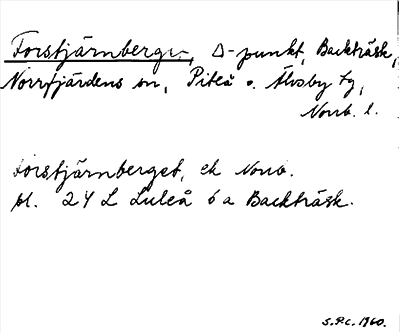 Forstjärnberget, Δ-punkt, Backträsk,
Norrfjärdens sn, Piteå o. Älvsby tg,
Norrb. l.
Forstjärnberget, ek Norrb.
bl. 24 L Luleå 6 a Backträsk.
S.P.C. 1960.